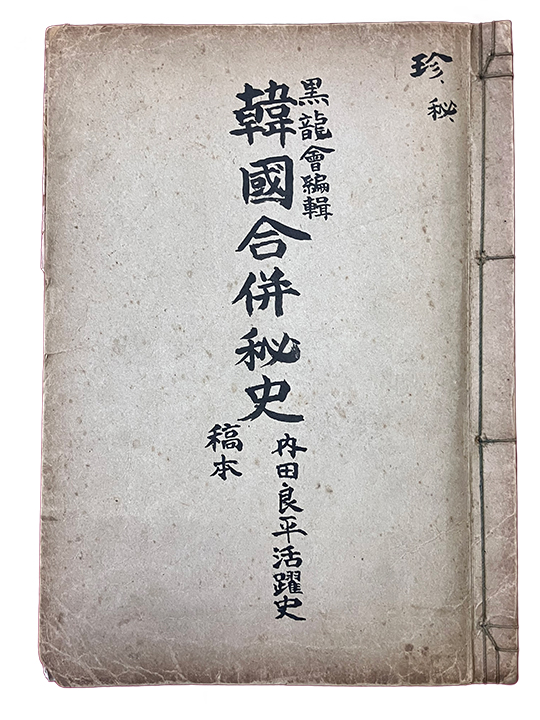 珍、秘、
黒龍會編輯
韓國合併秘史
内田良平活躍史
稿本